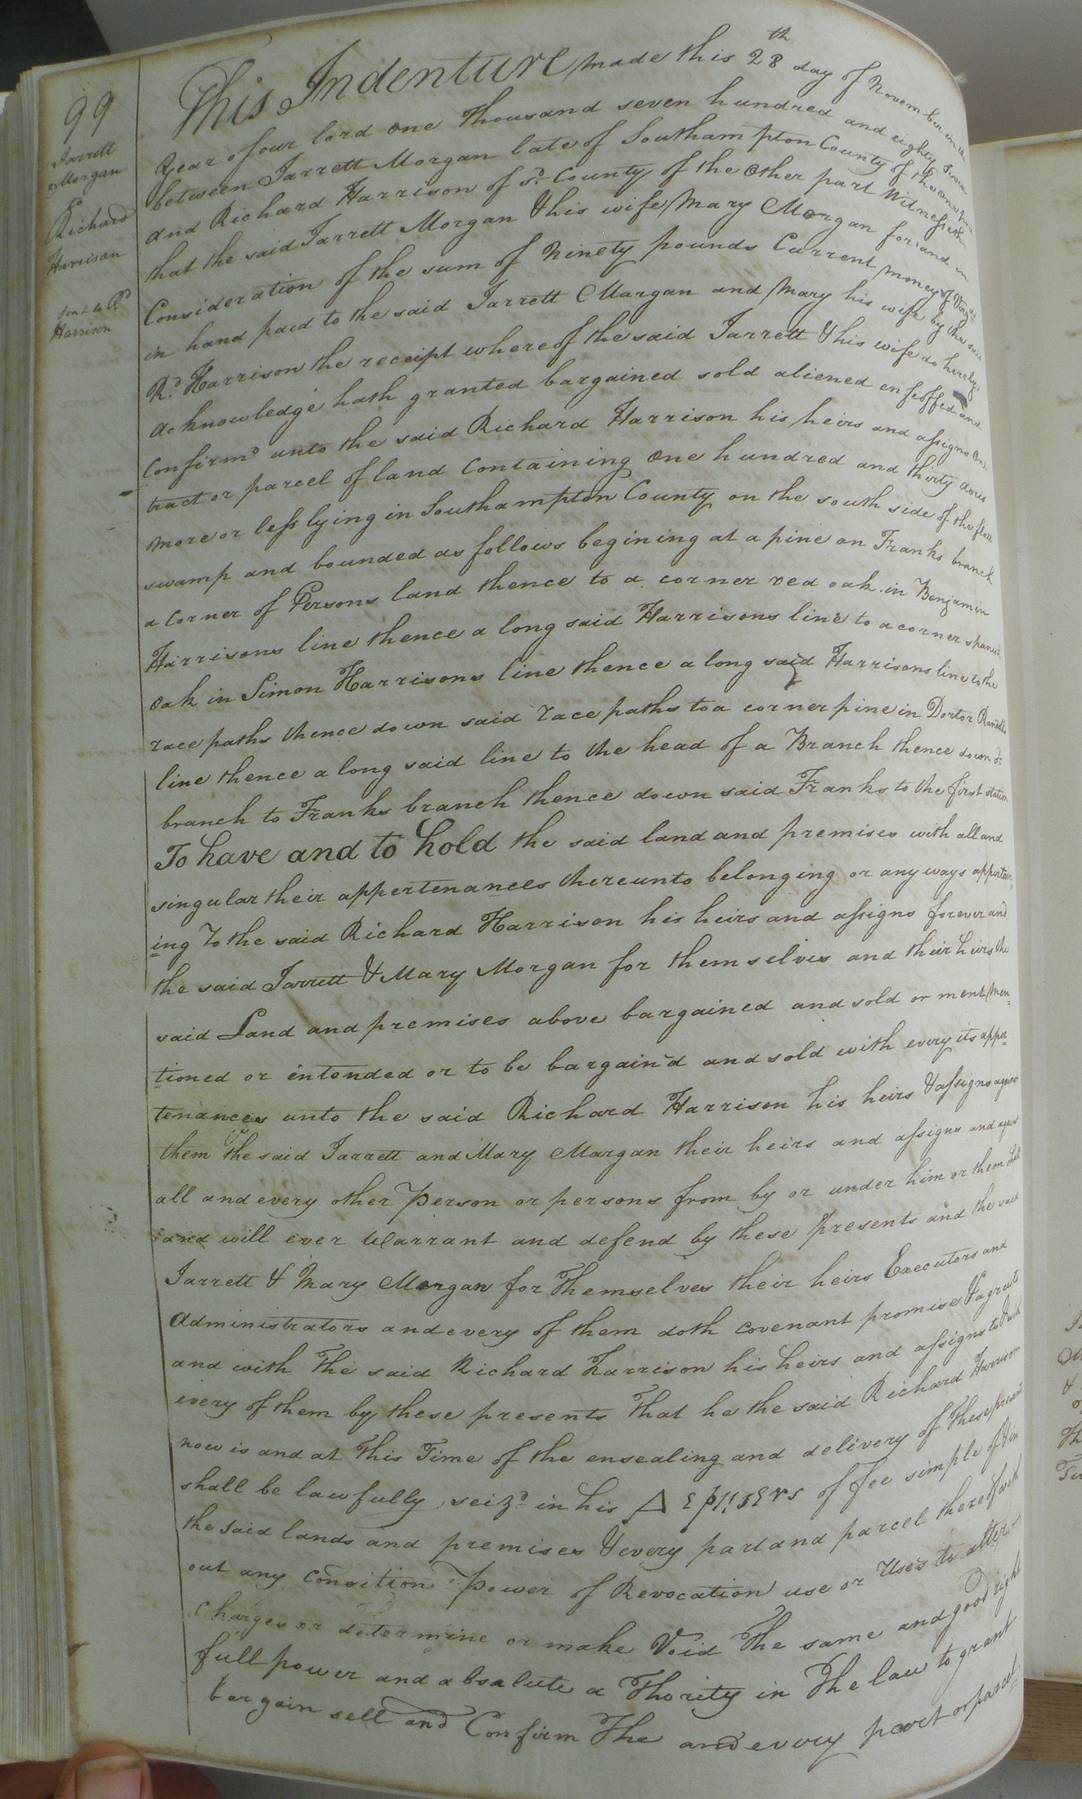 99
Jarrett
Morgan
To
Richard
Harrison
sent to Rd
Harrison
This Indenture made this 28th day of November in the
Year of our lord one thousand seven hundred and eighty seven
between Jarrett Morgan late of Southampton County of the one part
and Richard Harrison of sd. County of the other part Witnesseth
that the said Jarrett Morgan & his wife Mary Morgan for and in
Consideration of the sum of Ninety pounds Current money of Virga
in hand paid to the said Jarrett Morgan and Mary his wife by the said
Rd. Harrison the receipt whereof the said Jarrett & his wife do hereby
acknowledge hath granted bargained sold aliened enfeoffed and
Confirmd unto the said Richard Harrison his heirs and assigns one
tract or parcel of land Containing One hundred and thirty acres
more or less lying in Southampton County on the south side of the flatt
swamp and bounded as follows begining at a pine on Franks branch
a Corner of Persons land thence to a corner red oak in Benjamin
Harrisons line thence a long said Harrisons line to a corner spanish
Oak in Simon Harrisons line thence a long said Harrisons line to the
race paths thence down said race paths to a corner pine in Doctor
line thence a long said line to the head of a Branch thence down sd.
branch to Franks branch thence down said Franks to the first station
To have and to hold the said land and premises with all and
singular their appertenances thereunto belonging or any ways appertain-
ing To the said Richard Harrison his heirs and assigns forever and
the said Jarrett & Mary Morgan for themselves and their heirs the
said Land and premises above bargained and sold or ment Men-
tioned or intended or to be bargain'd and sold with every its apper-
tenances unto the said Richard Harrison his heirs & assigns against
them the said Jarrett and Mary Morgan their heirs and assigns and against
all and every other Person or persons from by or under him or them shall
and will ever Warrant and defend by these Presents and the said
Jarrett & Mary Morgan for Themselves their heirs Executors and
Administrators and every of them doth covenant promise & agree to
and with The said Richard Harrison his heirs and assigns to &
every of them by these presents That he the said Richard Harrison
now is and at This Time of the ensealing and delivery of These presents
shall be lawfully seizd. in his of fee simple of & in
the said lands and premises & every part and parcel thereof with
out any Condition Power of Revocation use or Uses to alter
Charges or determine or make Void The same and good right
full power and absolute a Thority in The law to grant
bargain sell and Confirm The and every part or parcel